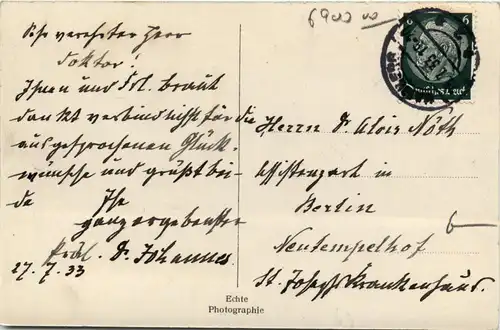 Sehr verehrter Herr
Doktor!
Ihnen und Frl. Braut
dankt verbindlichst für die
ausgesprochenen Glück-
wünsche und grüßt bei-
de Ihr
ganz ergebenster
Präl. D. Johannes
27.7.33
Herrn Dr. Alois Nöth
Assistenzarzt in
Berlin
Neutempelhof
St. Josephs Krankenhaus.
Echte
Photographie
6